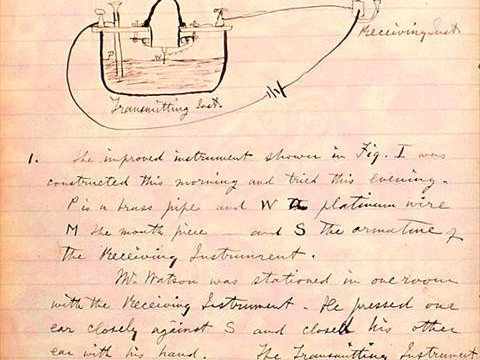 Receiving Inst.
P
W
Transmitting Inst.
1. The improved instrument shown in Fig. I was
constructed this morning and tried this evening.
P is a brass pipe and W the platinum wire
M the mouth piece and S the armature of
the Receiving Instrument.
Mr. Watson was stationed in one room
with the Receiving Instrument. He pressed one
ear closely against S and closed his other
ear with his hand. The Transmitting Instrument